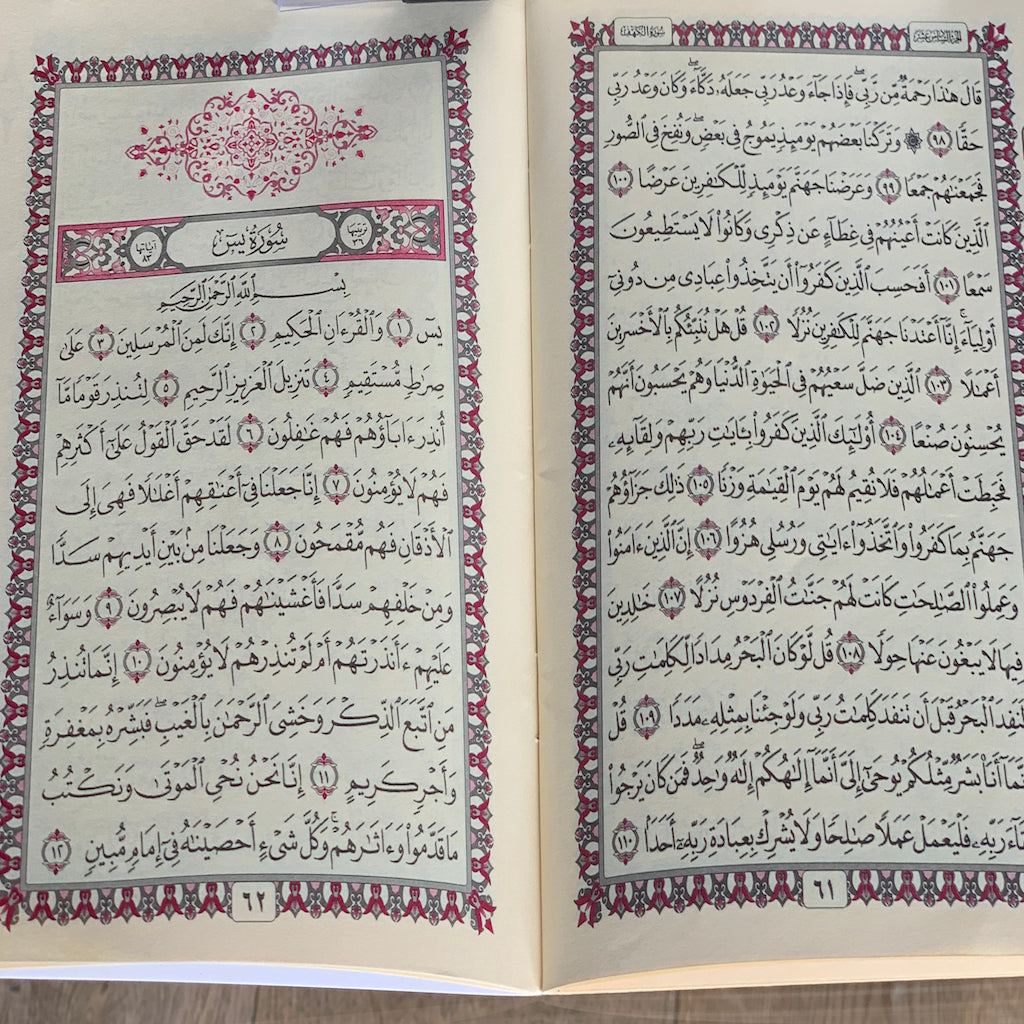 سورة الكهف
الجزء السادس عشر
قَالَ هَٰذَا رَحْمَةٌ مِّن رَّبِّي ۖ فَإِذَا جَآءَ وَعْدُ رَبِّي جَعَلَهُۥ دَكَّآءَ ۖ وَكَانَ وَعْدُ رَبِّي
حَقًّا ٩٨ ۞ وَتَرَكْنَا بَعْضَهُمْ يَوْمَئِذٍ يَمُوجُ فِي بَعْضٍ ۖ وَنُفِخَ فِي ٱلصُّورِ
فَجَمَعْنَٰهُمْ جَمْعًا ٩٩ وَعَرَضْنَا جَهَنَّمَ يَوْمَئِذٍ لِّلْكَٰفِرِينَ عَرْضًا ١٠٠
ٱلَّذِينَ كَانَتْ أَعْيُنُهُمْ فِي غِطَآءٍ عَن ذِكْرِي وَكَانُوا۟ لَا يَسْتَطِيعُونَ
سَمْعًا ١٠١ أَفَحَسِبَ ٱلَّذِينَ كَفَرُوٓا۟ أَن يَتَّخِذُوا۟ عِبَادِي مِن دُونِيٓ
أَوْلِيَآءَ ۚ إِنَّآ أَعْتَدْنَا جَهَنَّمَ لِلْكَٰفِرِينَ نُزُلًا ١٠٢ قُلْ هَلْ نُنَبِّئُكُم بِٱلْأَخْسَرِينَ
أَعْمَٰلًا ١٠٣ ٱلَّذِينَ ضَلَّ سَعْيُهُمْ فِي ٱلْحَيَوٰةِ ٱلدُّنْيَا وَهُمْ يَحْسَبُونَ أَنَّهُمْ
يُحْسِنُونَ صُنْعًا ١٠٤ أُو۟لَٰٓئِكَ ٱلَّذِينَ كَفَرُوا۟ بِـَٔايَٰتِ رَبِّهِمْ وَلِقَآئِهِۦ
فَحَبِطَتْ أَعْمَٰلُهُمْ فَلَا نُقِيمُ لَهُمْ يَوْمَ ٱلْقِيَٰمَةِ وَزْنًا ١٠٥ ذَٰلِكَ جَزَآؤُهُمْ
جَهَنَّمُ بِمَا كَفَرُوا۟ وَٱتَّخَذُوٓا۟ ءَايَٰتِي وَرُسُلِي هُزُوًا ١٠٦ إِنَّ ٱلَّذِينَ ءَامَنُوا۟
وَعَمِلُوا۟ ٱلصَّٰلِحَٰتِ كَانَتْ لَهُمْ جَنَّٰتُ ٱلْفِرْدَوْسِ نُزُلًا ١٠٧ خَٰلِدِينَ
فِيهَا لَا يَبْغُونَ عَنْهَا حِوَلًا ١٠٨ قُل لَّوْ كَانَ ٱلْبَحْرُ مِدَادًا لِّكَلِمَٰتِ رَبِّي
لَنَفِدَ ٱلْبَحْرُ قَبْلَ أَن تَنفَدَ كَلِمَٰتُ رَبِّي وَلَوْ جِئْنَا بِمِثْلِهِۦ مَدَدًا ١٠٩ قُلْ
إِنَّمَآ أَنَا۠ بَشَرٌ مِّثْلُكُمْ يُوحَىٰٓ إِلَيَّ أَنَّمَآ إِلَٰهُكُمْ إِلَٰهٌ وَٰحِدٌ ۖ فَمَن كَانَ يَرْجُوا۟
لِقَآءَ رَبِّهِۦ فَلْيَعْمَلْ عَمَلًا صَٰلِحًا وَلَا يُشْرِكْ بِعِبَادَةِ رَبِّهِۦٓ أَحَدًۢا ١١٠
٦١
ترتيبها ٣٦
سُورَةُ يسٓ
آياتها ٨٣
بِسْمِ ٱللَّهِ ٱلرَّحْمَٰنِ ٱلرَّحِيمِ
يسٓ ١ وَٱلْقُرْءَانِ ٱلْحَكِيمِ ٢ إِنَّكَ لَمِنَ ٱلْمُرْسَلِينَ ٣ عَلَىٰ
صِرَٰطٍ مُّسْتَقِيمٍ ٤ تَنزِيلَ ٱلْعَزِيزِ ٱلرَّحِيمِ ٥ لِتُنذِرَ قَوْمًا مَّآ
أُنذِرَ ءَابَآؤُهُمْ فَهُمْ غَٰفِلُونَ ٦ لَقَدْ حَقَّ ٱلْقَوْلُ عَلَىٰٓ أَكْثَرِهِمْ
فَهُمْ لَا يُؤْمِنُونَ ٧ إِنَّا جَعَلْنَا فِيٓ أَعْنَٰقِهِمْ أَغْلَٰلًا فَهِيَ إِلَى
ٱلْأَذْقَانِ فَهُم مُّقْمَحُونَ ٨ وَجَعَلْنَا مِنۢ بَيْنِ أَيْدِيهِمْ سَدًّا
وَمِنْ خَلْفِهِمْ سَدًّا فَأَغْشَيْنَٰهُمْ فَهُمْ لَا يُبْصِرُونَ ٩ وَسَوَآءٌ
عَلَيْهِمْ ءَأَنذَرْتَهُمْ أَمْ لَمْ تُنذِرْهُمْ لَا يُؤْمِنُونَ ١٠ إِنَّمَا تُنذِرُ
مَنِ ٱتَّبَعَ ٱلذِّكْرَ وَخَشِيَ ٱلرَّحْمَٰنَ بِٱلْغَيْبِ ۖ فَبَشِّرْهُ بِمَغْفِرَةٍ
وَأَجْرٍ كَرِيمٍ ١١ إِنَّا نَحْنُ نُحْيِ ٱلْمَوْتَىٰ وَنَكْتُبُ
مَا قَدَّمُوا۟ وَءَاثَٰرَهُمْ ۚ وَكُلَّ شَيْءٍ أَحْصَيْنَٰهُ فِيٓ إِمَامٍ مُّبِينٍ ١٢
٦٢